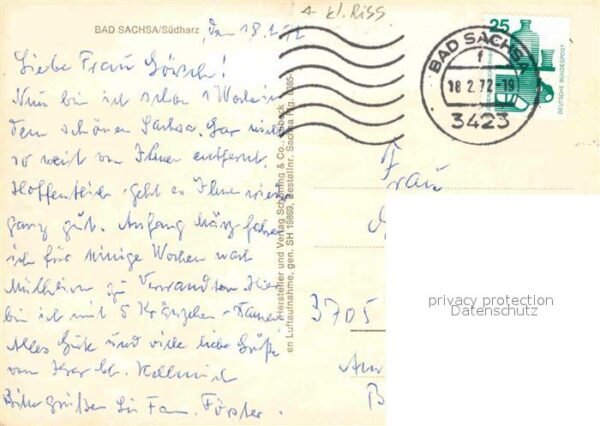 BAD SACHSA/Südharz
den 18.2.72
4 kl. Riss
Liebe Frau Görsch!
Nun bin ich schon 1 Woche in
dem schönen Sachsa. Gar nicht
so weit von Ihnen entfernt.
Hoffentlich geht es Ihnen wieder
ganz gut. Anfang März fahre
ich für einige Wochen nach
Mülheim zu Verwandten. Hier
bin ich mit 5 Kränzchen-Damen
Alles Gute und viele liebe Grüße
von Ihrer
Bitte grüßen Sie Fam. Förster.
Hersteller und Verlag Schöning & Co., Lübeck
en Luftaufnahme, gen. SH 19869, Bestellnr. Sachsa
25
DEUTSCHE BUNDESPOST
BAD SACHSA
f
18.2.72-19
3423
Frau
3705
privacy protection
Datenschutz